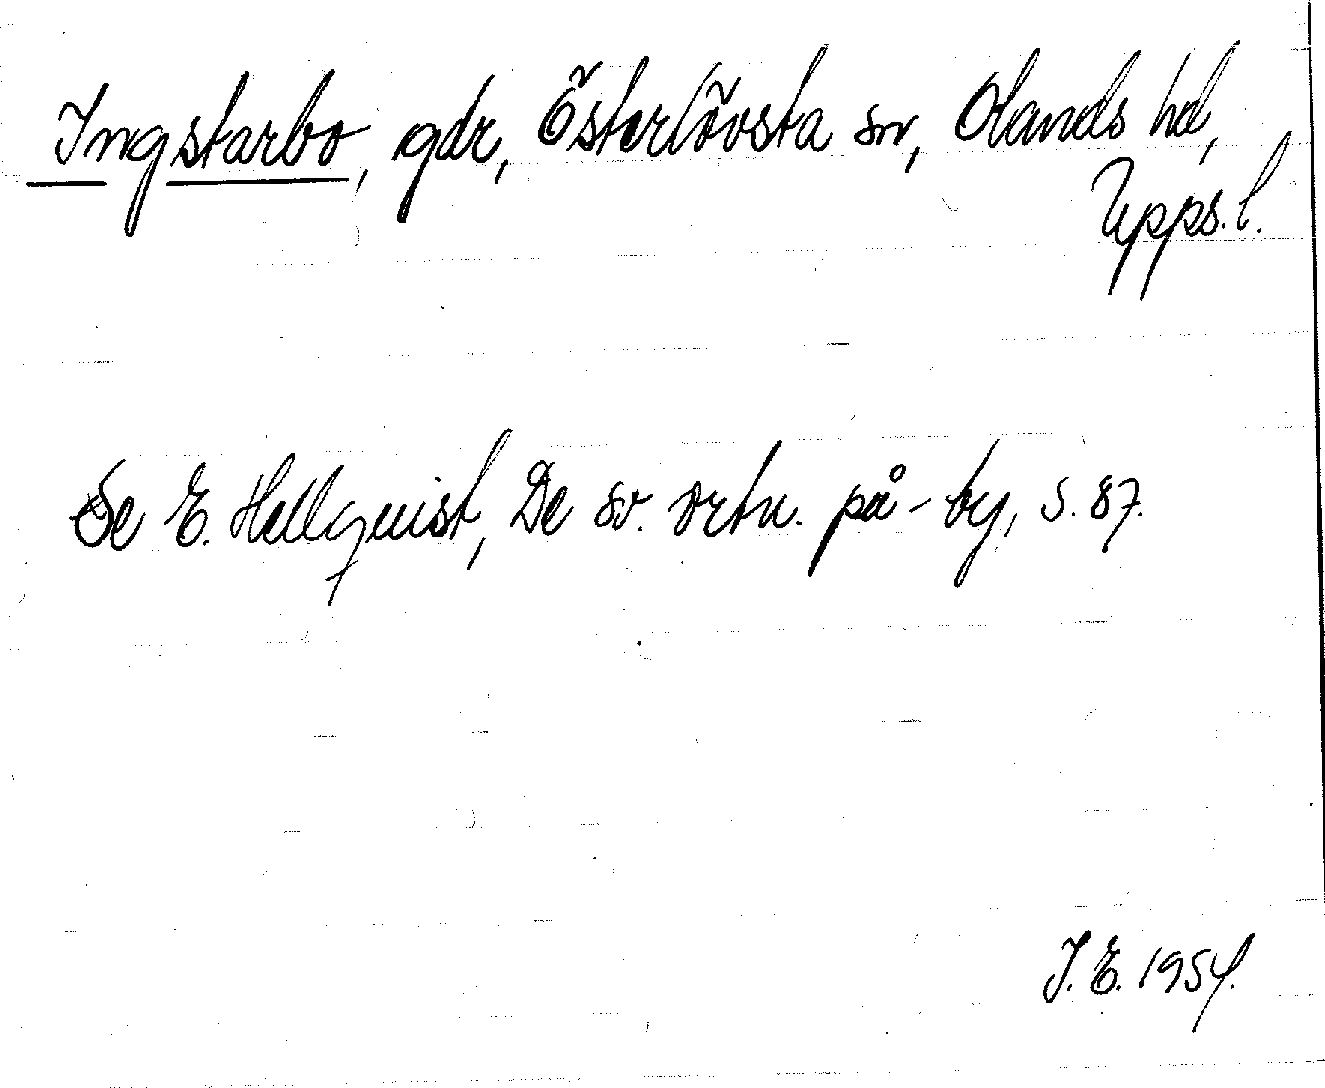 Ingstarbo, gdr, Österlövsta sn, Olands hd,
Upps. l.
Se E. Hellquist, De sv. ortn. på -by, s. 87.
I. E. 1954.